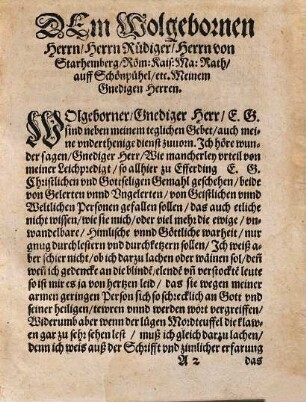 DEm Wolgebornen
Herrn/Herrn Rüdiger/Herrn von
Starhemberg/Röm: Kais: Ma: Rath/
auff Schönpühel/etc. Meinem
Gnedigen Herren.
WOlgeborner/Gnediger Herr/E. G.
sind neben meinem teglichen Gebet/auch mei-
ne vnderthenige dienst zuuorn. Ich höre wun-
der sagen/Gnediger Herr/Wie mancherley vrteil von
meiner Leichpredigt/so allhier zu Efferding E. G.
Christlichen vnd Gotseligen Gemahl geschehen/beide
von Gelerten vnnd Vngelerten/von Geistlichen vnnd
Weltlichen Personen gefallen sollen/das auch etliche
nicht wissen/wie sie mich/oder viel mehr die ewige/vn-
wandelbare/Himlische vnnd Göttliche warheit/nur
gnug durchlestern vnd durchketzern sollen/Ich weiß a-
ber schier nicht/ob ich darzu lachen oder wäinen sol/deñ
weñ ich gedencke an die blinde/elende vñ verstockte leute
so ist mir es ja von hertzen leid/das sie wegen meiner
armen geringen Person sich so schrecklich an Gott vnd
seiner heiligen/tewren vnnd werden wort vergreiffen/
Widerumb aber wenn der lügen Mordteuffel die klaw-
en gar zu sehr sehen lest/muß ich gleich darzu lachen/
denn ich weis auß der Schrifft vnd zimlicher erfarung
A 2 das